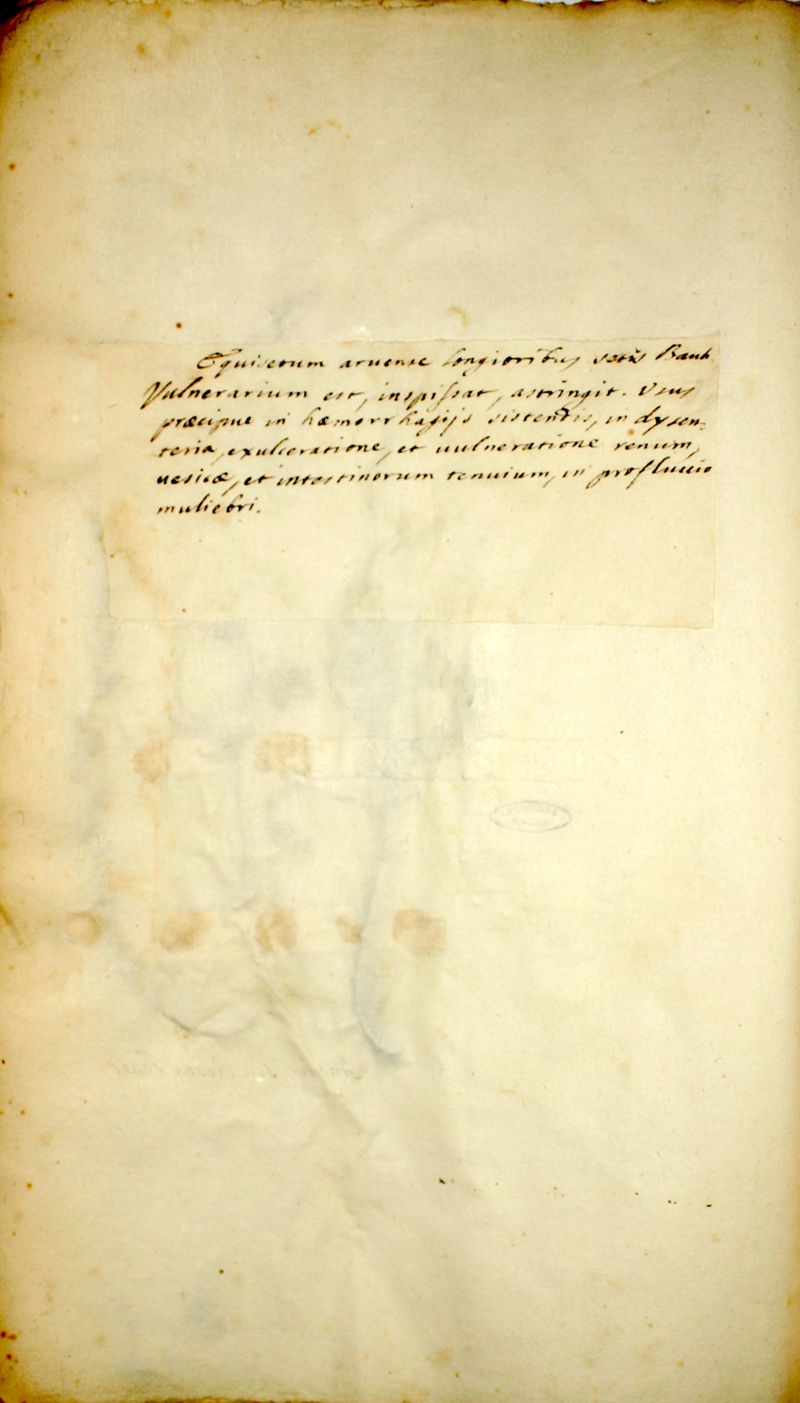 Equisetum aruense longioribus setis Bauh
Vulnerarium est, inspissat, astringit. Usus
præcipue in hæmorrhagijs sistendis, in dysen-
teria, exulceratione, et uulneratione renum,
uesicæ, et intestinorum tenuium, in profluuio
muliebri.